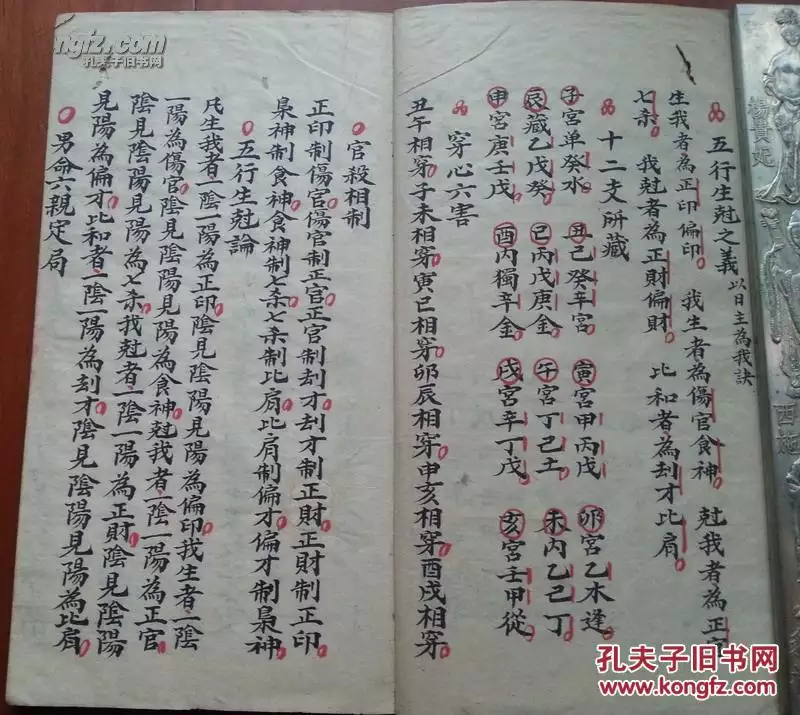 五行生尅之義 以日主為我訣
生我者為正印偏印 我生者為傷官食神 尅我者為正官
七杀 我尅者為正財偏財 比和者為刦才比肩
十二支所藏
子宮单癸水 丑己癸辛宮 寅宮甲丙戊 卯宮乙木逢
辰藏乙戊癸 巳丙戊庚金 午宮丁己土 未丙乙己丁
申宮庚壬戊 酉丙獨辛金 戌宮辛丁戊 亥宮壬甲從
穿心六害
丑午相穿子未相穿寅巳相穿卯辰相穿申亥相穿酉戌相穿
官殺相制
正印制傷官傷官制正官正官制刦才刦才制正財正財制正印
梟神制食神食神制七杀七杀制比肩比肩制偏才偏才制梟神
五行生尅論
凡生我者一陰一陽為正印陰見陰陽見陽為偏印我生者一陰
一陽為傷官陰見陰陽見陽為食神尅我者一陰一陽為正官
陰見陰陽見陽為七杀我尅者一陰一陽為正財陰見陰陽
見陽為偏才比和者一陰一陽為刦才陰見陰陽見陽為比肩
男命六親定局
楊貴妃
西施
kongfz.com
孔夫子旧书网
孔夫子旧书网
www.kongfz.com